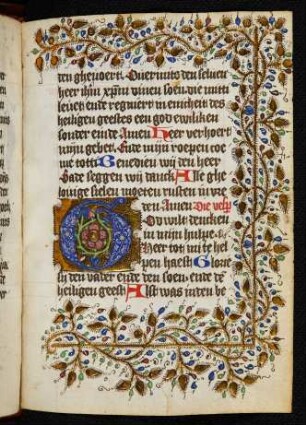 den ghewerct. Overmits den seluen
heer ihm xpm dinen soen die mitti
leuet ende regniert in enicheit des
heiligen geestes een god ewiliken
sonder ende Amen Heer verhoert
mijn gebet Ende mijn roepen coe
me tot ti Benedien wij den heer
Gode seggen wij danck Alle ghe
louige sielen moeten rusten in vre
den Amen Die vesp
God wilt dencken
in mijn hulpe
Heer tot mi te hel
pen haest Glorie
si den vader ende den soen ende de
heiligen geest Alst was in den be